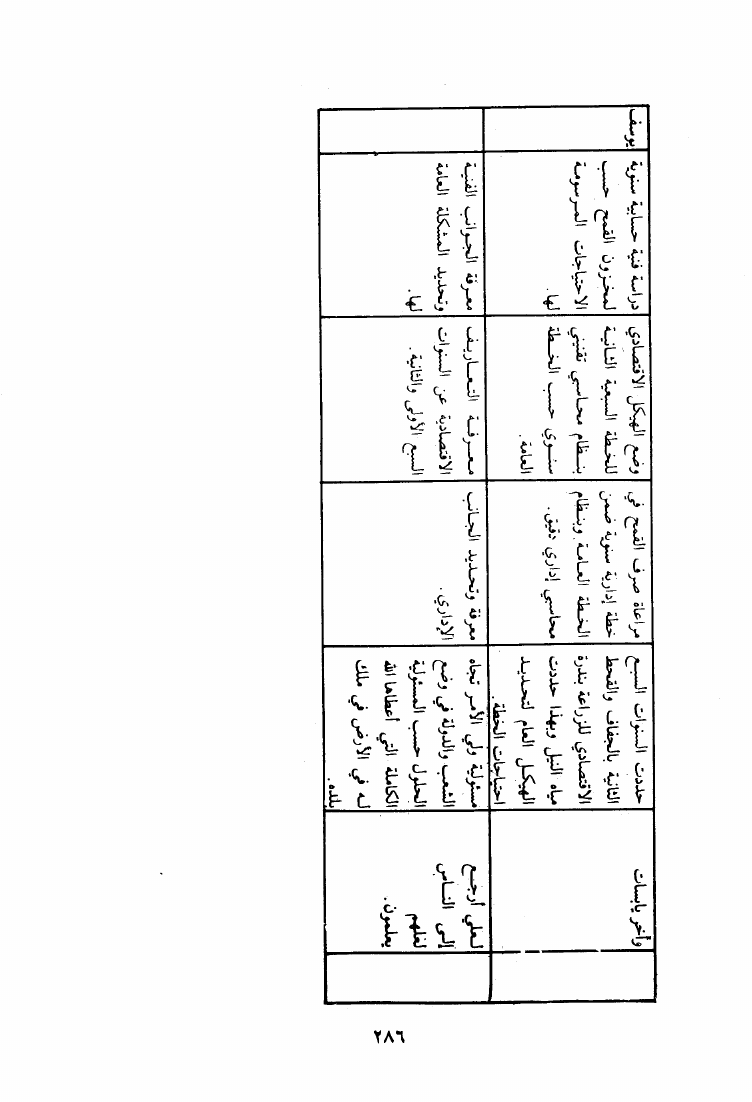 وأخر يابسات
حددت السنوات السبع
الثانية بالجفاف والقحط
الاقتصادي للزراعة بندرة
مياه النيل وبهذا حددت
الهيكل العام لتحديد
احتياجات الخطة.
مراعاة صرف القمح في
خطة إدارية سنوية ضمن
الخطة العامة وبنظام
محاسبي إداري دقيق.
وضع الهيكل الاقتصادي
للخطة السبعية الثانية
بنظام محاسبي تقنيني
سنوي حسب الخطة
العامة.
دراسة فنية حسابية سنوية
لمخزون القمح حسب
الاحتياجات المرسومة
لها.
يوسف
لعلي أرجع
إلى الناس
لعلهم
يعلمون.
مسئولية ولي الأمر تجاه
الشعب والدولة في وضع
الحلول حسب المسئولية
الكاملة التي أعطاها الله
له في الأرض في ملك
بلده.
معرفة وتحديد الجانب
الإداري.
معرفة التعاريف
الاقتصادية عن السنوات
السبع الأولى والثانية.
معرفة الجوانب الفنية
وتحديد المشكلة العامة
لها.
٢٨٦